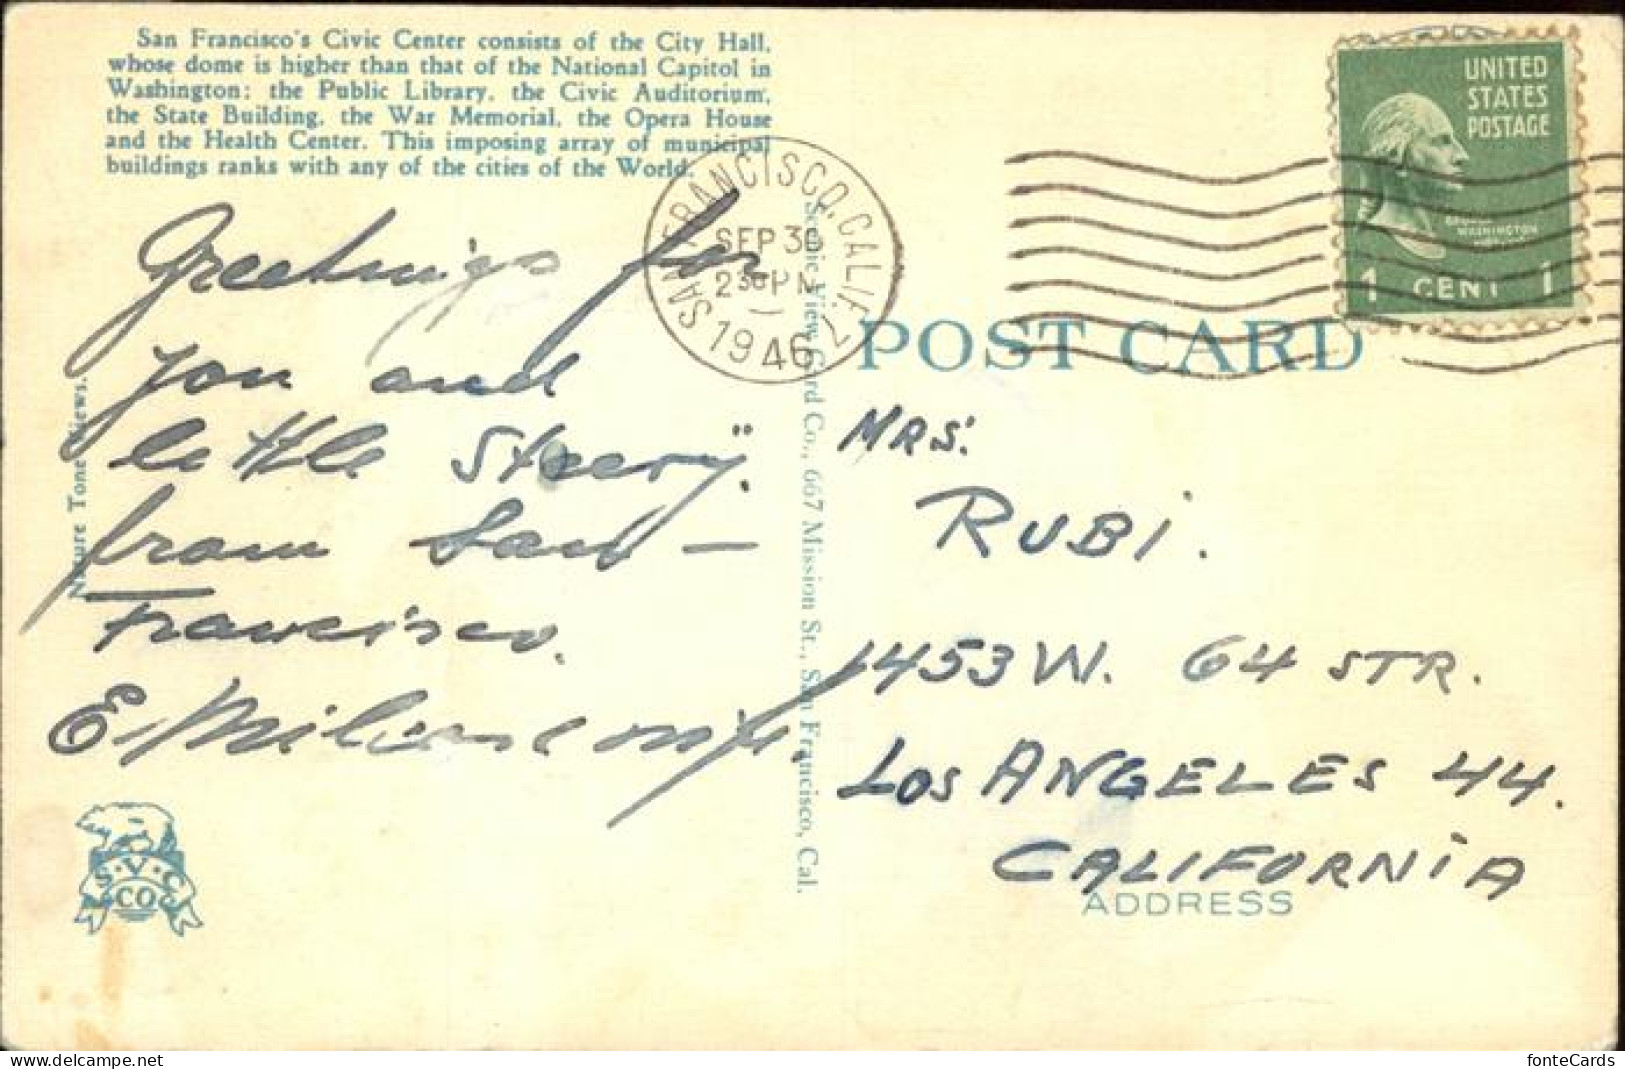 San Francisco's Civic Center consists of the City Hall,
whose dome is higher than that of the National Capitol in
Washington; the Public Library, the Civic Auditorium,
the State Building, the War Memorial, the Opera House
and the Health Center. This imposing array of municipal
buildings ranks with any of the cities of the World.
Greetings for
you and
little
from San—
Francisco.
E.
Nature Tone Views.
S.V.C.
CO
SAN FRANCISCO, CALIF.
SEP 30
2 30 PM
1946
Scenic View Card Co., 667 Mission St., San Francisco, Cal.
UNITED
STATES
POSTAGE
WASHINGTON
1 CENT 1
POST CARD
MRS.
RUBI.
1453 W. 64 STR.
LOS ANGELES 44.
CALIFORNIA
ADDRESS
fonteCards